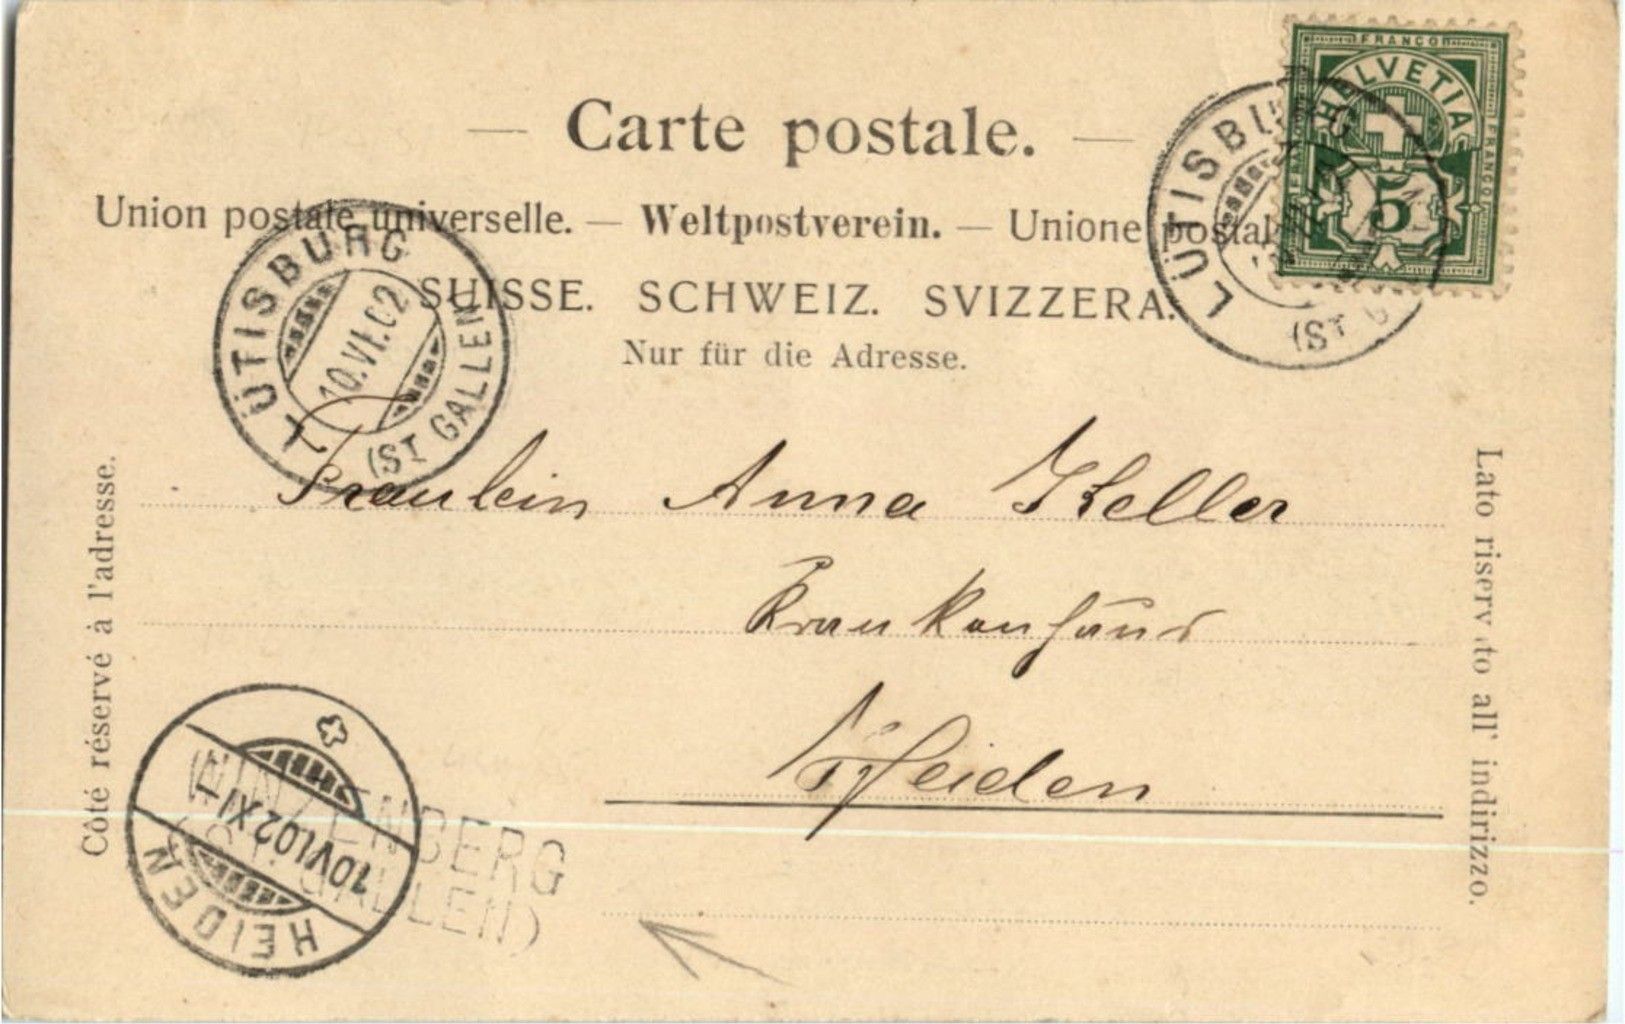 FRANCO
HELVETIA
FRANCO
FRANCO
5
— Carte postale. —
Union postale universelle. — Weltpostverein. — Unione postal
SUISSE. SCHWEIZ. SVIZZERA.
Nur für die Adresse.
LÜTISBURG
10.VI.02
(ST GALLEN)
LÜTISBURG
(ST G
Côté réservé à l'adresse.
Lato riservato all' indirizzo.
Fräulein Anna Keller
Krankenhaus
Heiden
HEIDEN
10 VI.02 XI-
WINZENBERG
(ST. GALLEN)